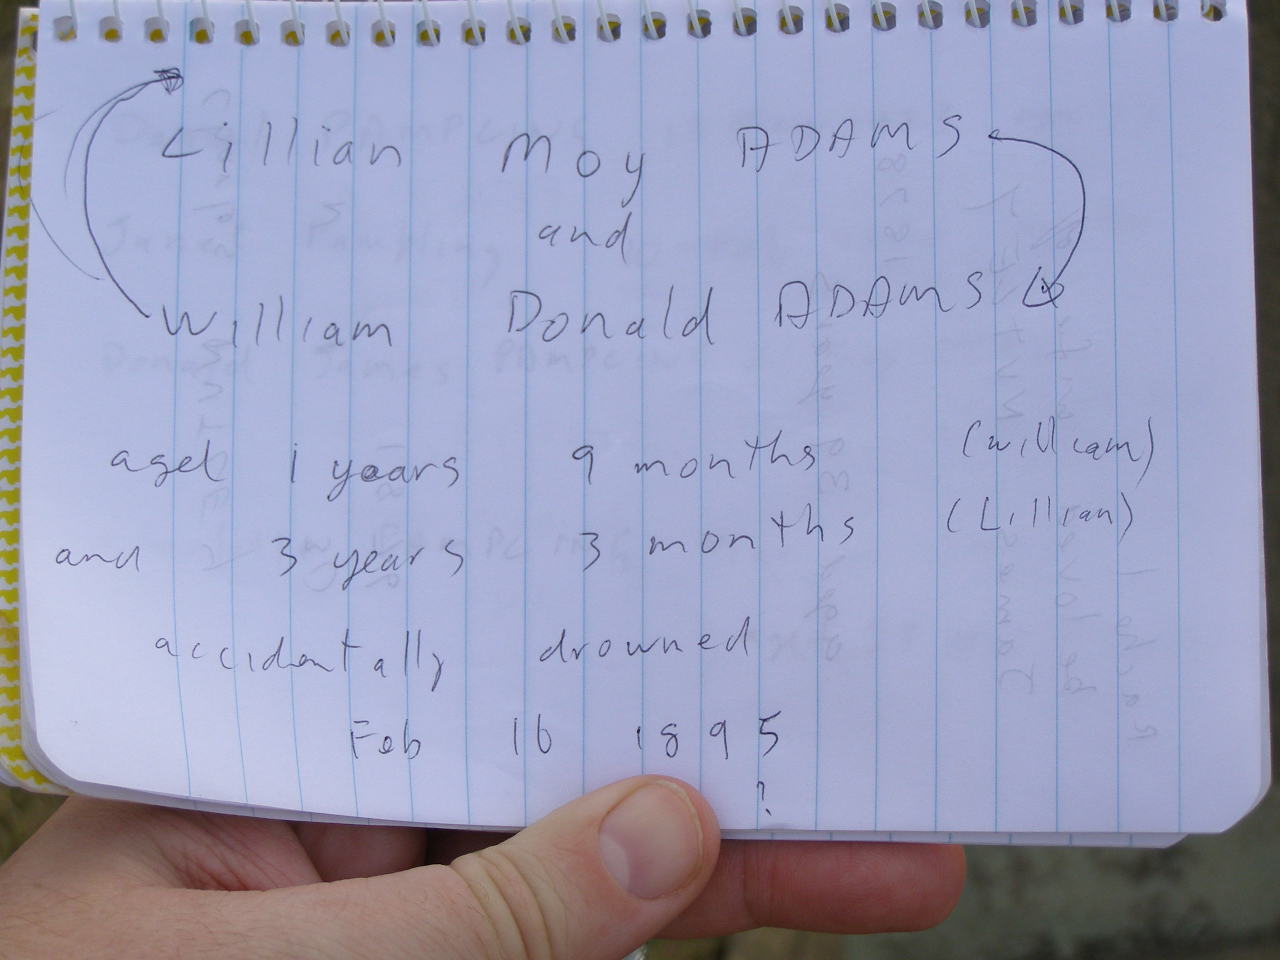 Lillian Moy ADAMS
and
William Donald ADAMS
aged 1 years 9 months (William)
and 3 years 3 months (Lillian)
accidentally drowned
Feb 16 1895
?